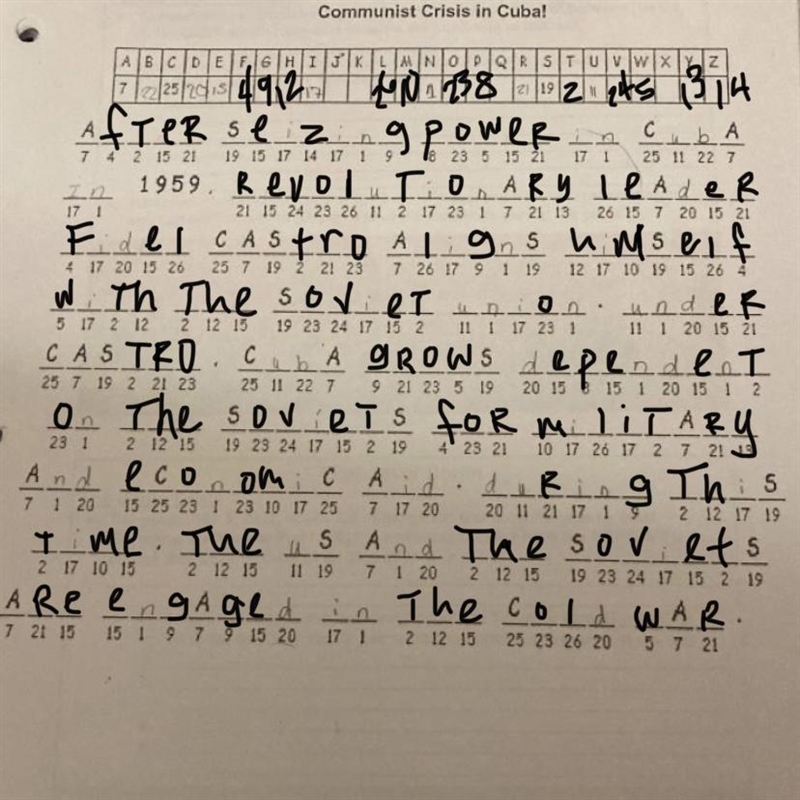 Communist Crisis in Cuba!
A B C D E F G H I J K L M N O P Q R S T U V W X Y Z
7 22 25 20 15 4 9 12 17 1 23 8 21 19 2 11 24 5 13 14
AfTeR Seizing poweR in CubA
7 4 2 15 21 19 15 17 14 17 1 9 8 23 5 15 21 17 1 25 11 22 7
In 1959. RevoluTionARy leAdeR
17 1 21 15 24 23 26 11 2 17 23 1 7 21 13 26 15 7 20 15 21
Fidel CAStRO AlignS himSelf
4 17 20 15 26 25 7 19 2 21 23 7 26 17 9 1 19 12 17 10 19 15 26 4
wiTh The SovieT union. undeR
5 17 2 12 2 12 15 19 23 24 17 15 2 11 1 17 23 1 11 1 20 15 21
CASTRO. CubA gROWS dependenT
25 7 19 2 21 23 25 11 22 7 9 21 23 5 19 20 15 8 15 1 20 15 1 2
On The SovieTS foR miliTARy
23 1 2 12 15 19 23 24 17 15 2 19 4 23 21 10 17 26 17 2 7 21 13
And economiC Aid. duRing ThiS
7 1 20 15 25 23 1 23 10 17 25 7 17 20 20 11 21 17 1 9 2 12 17 19
Time. The uS And The SovietS
2 17 10 15 2 12 15 11 19 7 1 20 2 12 15 19 23 24 17 15 2 19
ARe engAged in The Cold wAR.
7 21 15 15 1 9 7 9 15 20 17 1 2 12 15 25 23 26 20 5 7 21